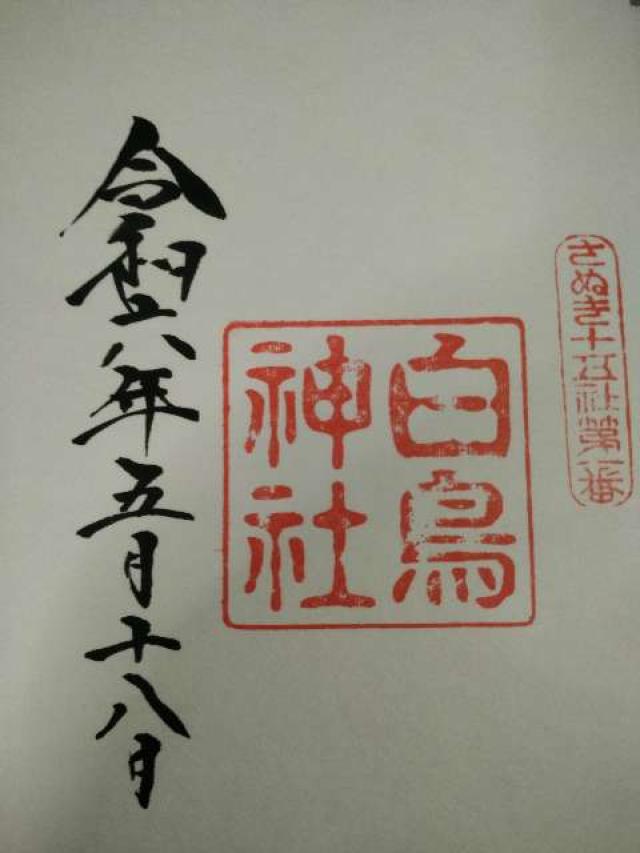 さぬき十五社第一番
白鳥
神社
令和六年五月十八日